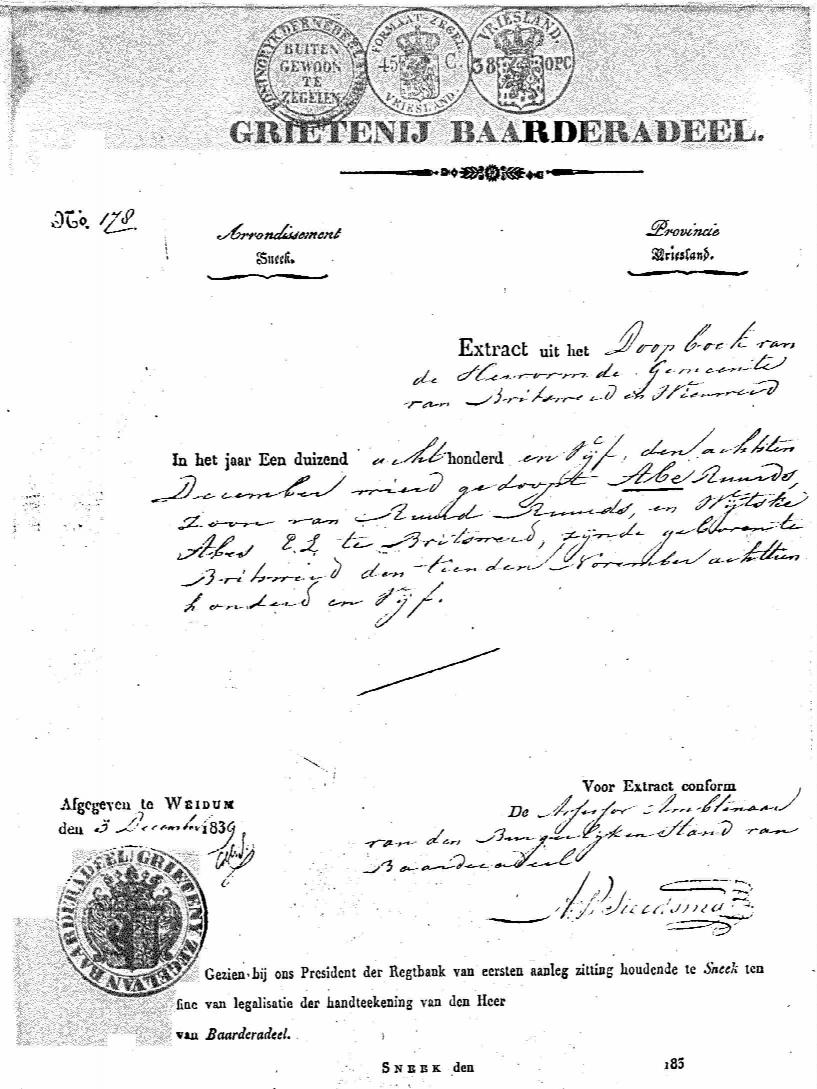 KONINGRYK DER NEDERLANDEN
BUITEN
GEWOON
TE
ZEGELEN
FORMAAT-ZEGEL.
45 C.
VRIESLAND.
VRIESLAND.
38 OPC
GRIETENIJ BAARDERADEEL.
No. 178
Arrondissement
Sneek.
Provincie
Vriesland.
Extract uit het Doopboek van
de Hervormde Gemeente
van Britswerd en Wieuwerd
In het jaar Een duizend acht honderd en Vijf, den achtsten
December wierd gedoopt Abe Ruurds,
zoon van Ruurd Ruurds, en Wijtske
Abes E.L. te Britswerd, zijnde geboren te
Britswerd den tienden November achttien
honderd en Vijf.
Afgegeven te WEIDUM
den 3 December 1839
Voor Extract conform
De Assessor Ambtenaar
van den Burgerlijken Stand van
Baarderadeel
Sierdsma
GRIETENY ZEGEL VAN BAARDERADEEL
Gezien bij ons President der Regtbank van eersten aanleg zitting houdende te Sneek ten
fine van legalisatie der handteekening van den Heer
van Baarderadeel.
SNEEK den 183